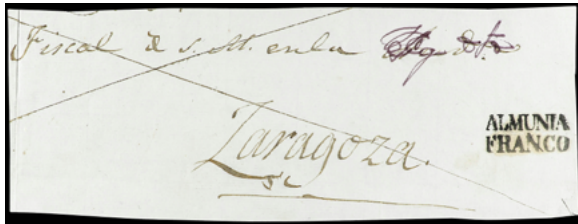 Fiscal de S. M. en la
Zaragoza.
ALMUNIA
FRANCO